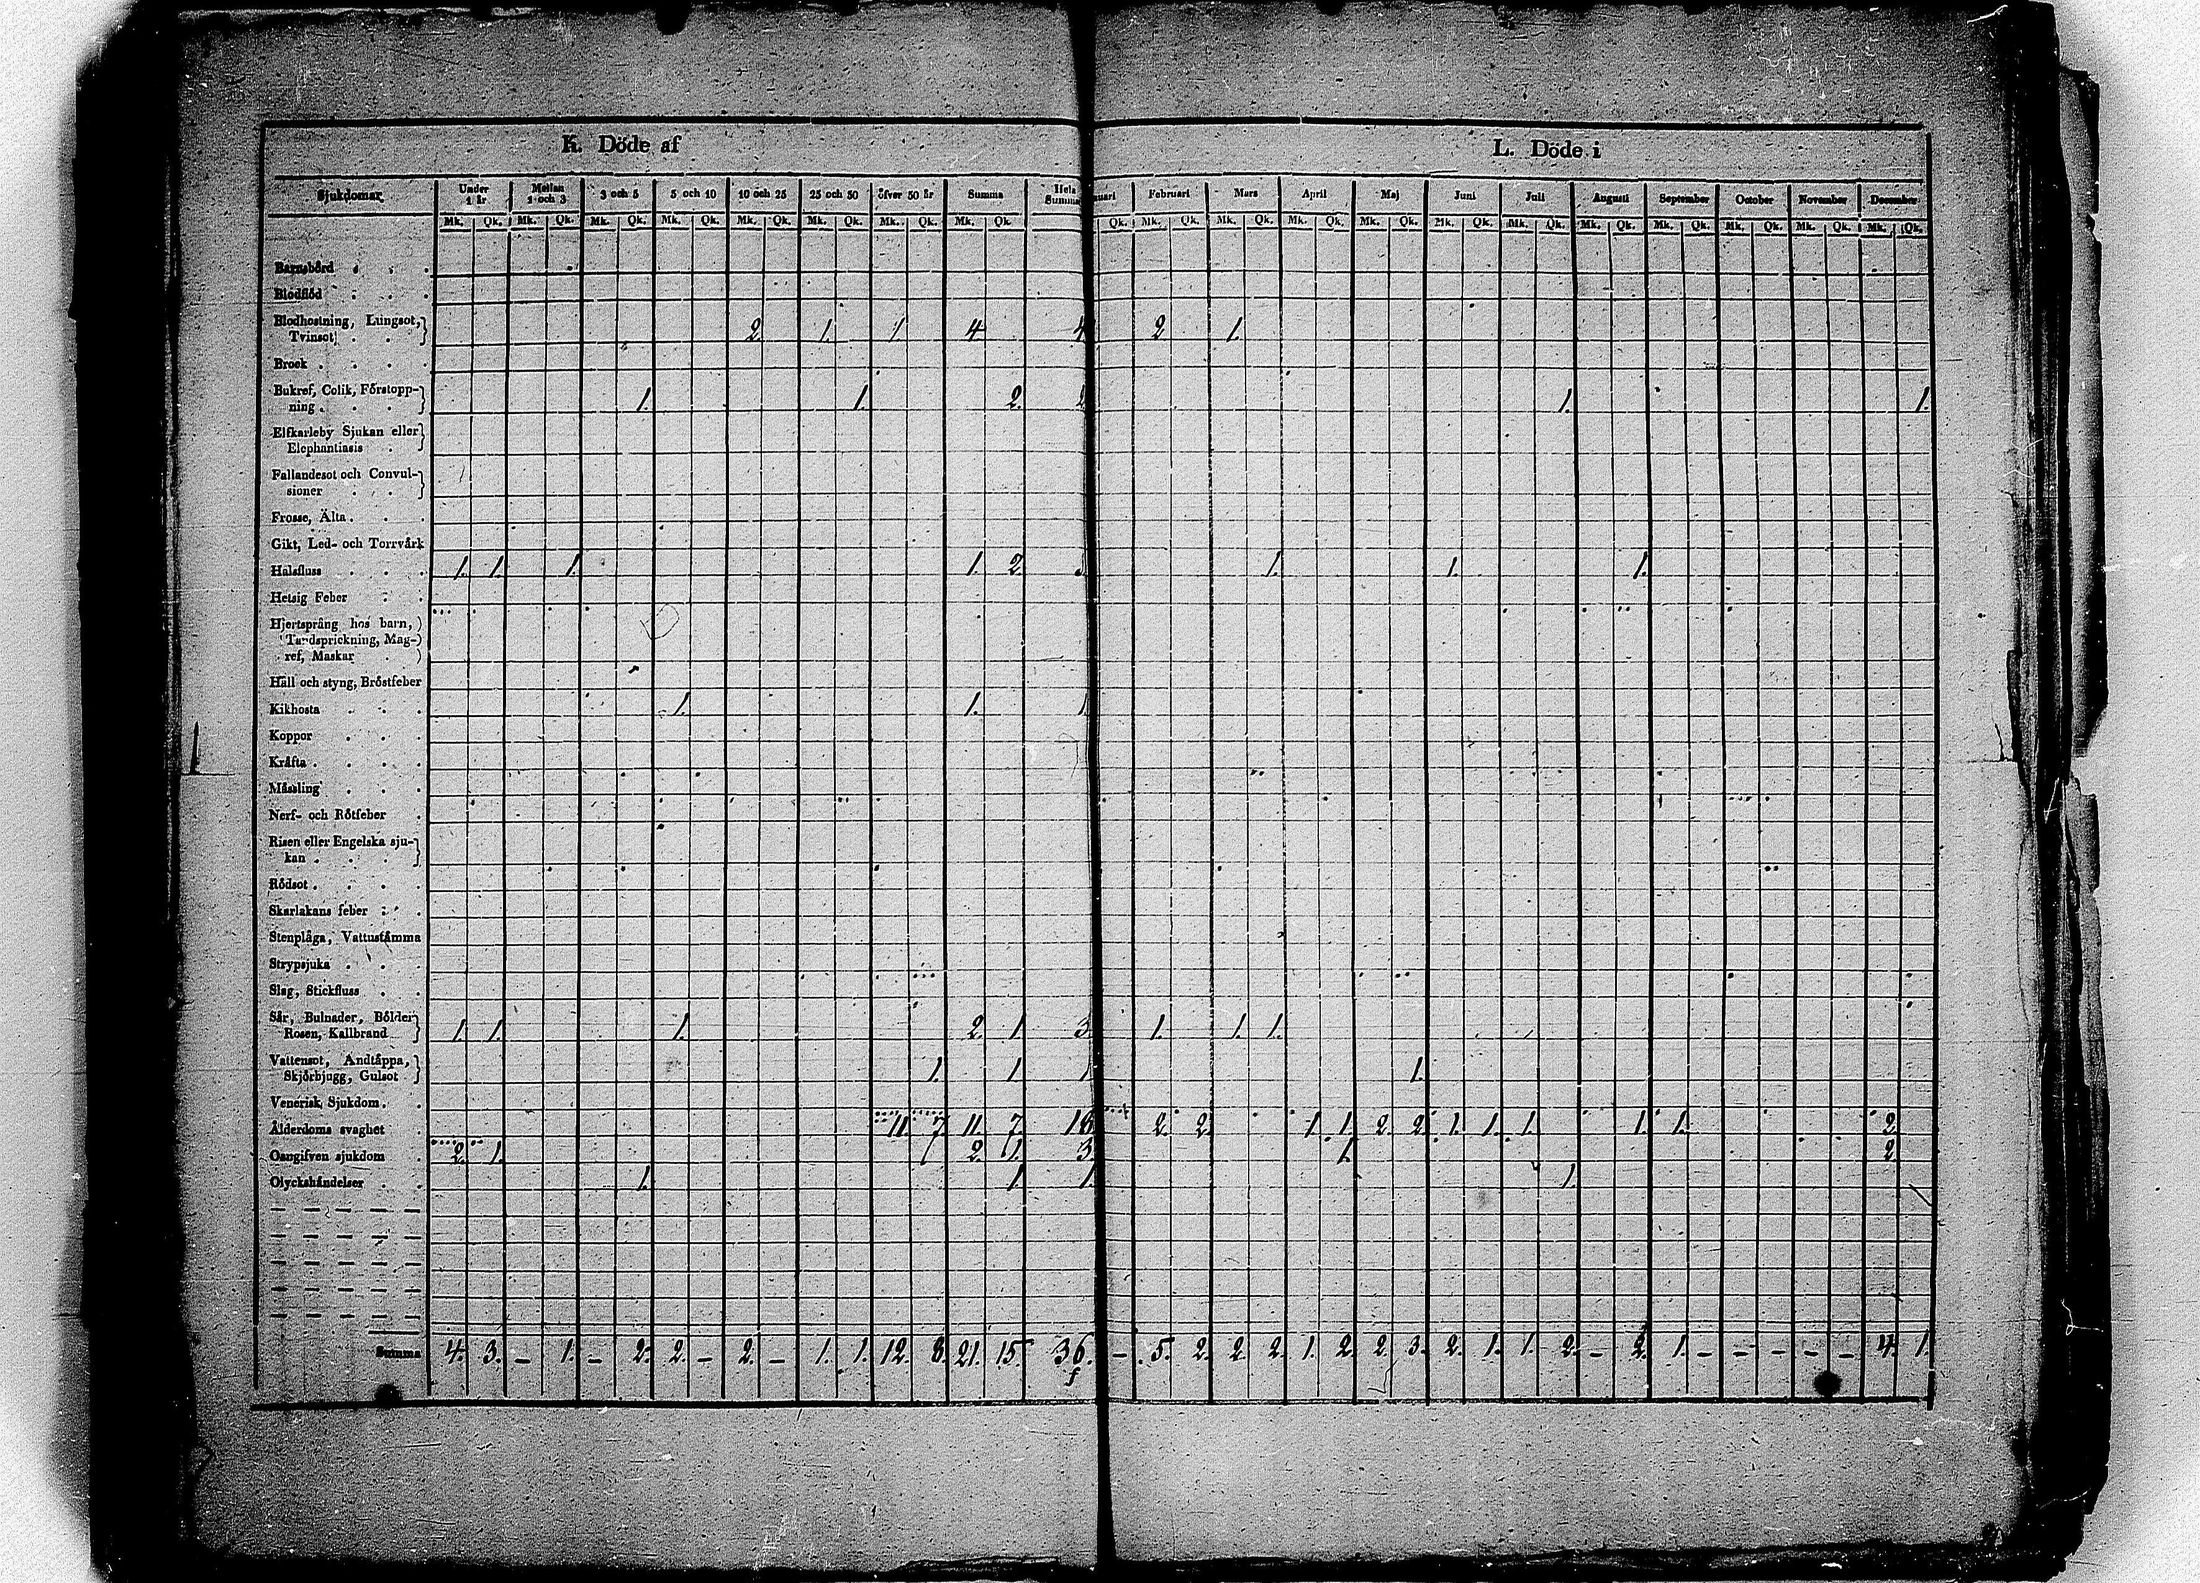 K. Döde af
L. Döde i
Sjukdomar Under 1 år Mellan 1 och 3 3 och 5 5 och 10 10 och 25 25 och 50 öfver 50 år Summa Hela Summa uari Februari Mars April Maj Juni Juli Augusti September October November December
Mk. Qk. Mk. Qk. Mk. Qk. Mk. Qk. Mk. Qk. Mk. Qk. Mk. Qk. Mk. Qk. Qk. Mk. Qk. Mk. Qk. Mk. Qk. Mk. Qk. Mk. Qk. Mk. Qk. Mk. Qk. Mk. Qk. Mk. Qk. Mk. Qk. Mk. Qk.
Barnsbörd
Blodflöd
Blodhostning, Lungsot,
Tvinsot 2 1. 1 4 4 2 1.
Brock
Bukref, Colik, Förstopp-
ning 1. 1. 2. 2 1. 1.
Elfkarleby Sjukan eller
Elephantiasis
Fallandesot och Convul-
sioner
Frosse, Älta
Gikt, Led- och Torrvärk
Halsfluss 1. 1. 1. 1. 2. 1. 1. 1.
Hetsig Feber
Hjertsprång hos barn,
Tandsprickning, Mag-
ref, Maskar
Håll och styng, Bröstfeber
Kikhosta 1. 1. 1
Koppor
Kräfta
Mässling
Nerf- och Rötfeber
Risen eller Engelska sju-
kan
Rödsot
Skarlakans feber
Stenplåga, Vattustämma
Strypsjuka
Slag, Stickfluss
Sår, Bulnader, Bölder
Rosen, Kallbrand 1. 1. 1. 2. 1 3 1. 1. 1.
Vattensot, Andtäppa,
Skjörbjugg, Gulsot 1. 1 1 1.
Venerisk Sjukdom
Ålderdoms svaghet 11. 7 11. 7. 18 2. 2 1 1. 2. 2. 1. 1. 1. 1. 1. 2.
Oangifven sjukdom 2. 1. 2. 1. 3. 1. 2.
Olyckshändelser 1. 1 1. 1.
Summa 4. 3. – 1. – 2. 2. – 2. – 1. 1. 12. 8. 21. 15. 36. – 5. 2. 2. 2. 1. 2. 2. 3. 2. 1. 1. 2. – 2. 1. – – – – – 4. 1.